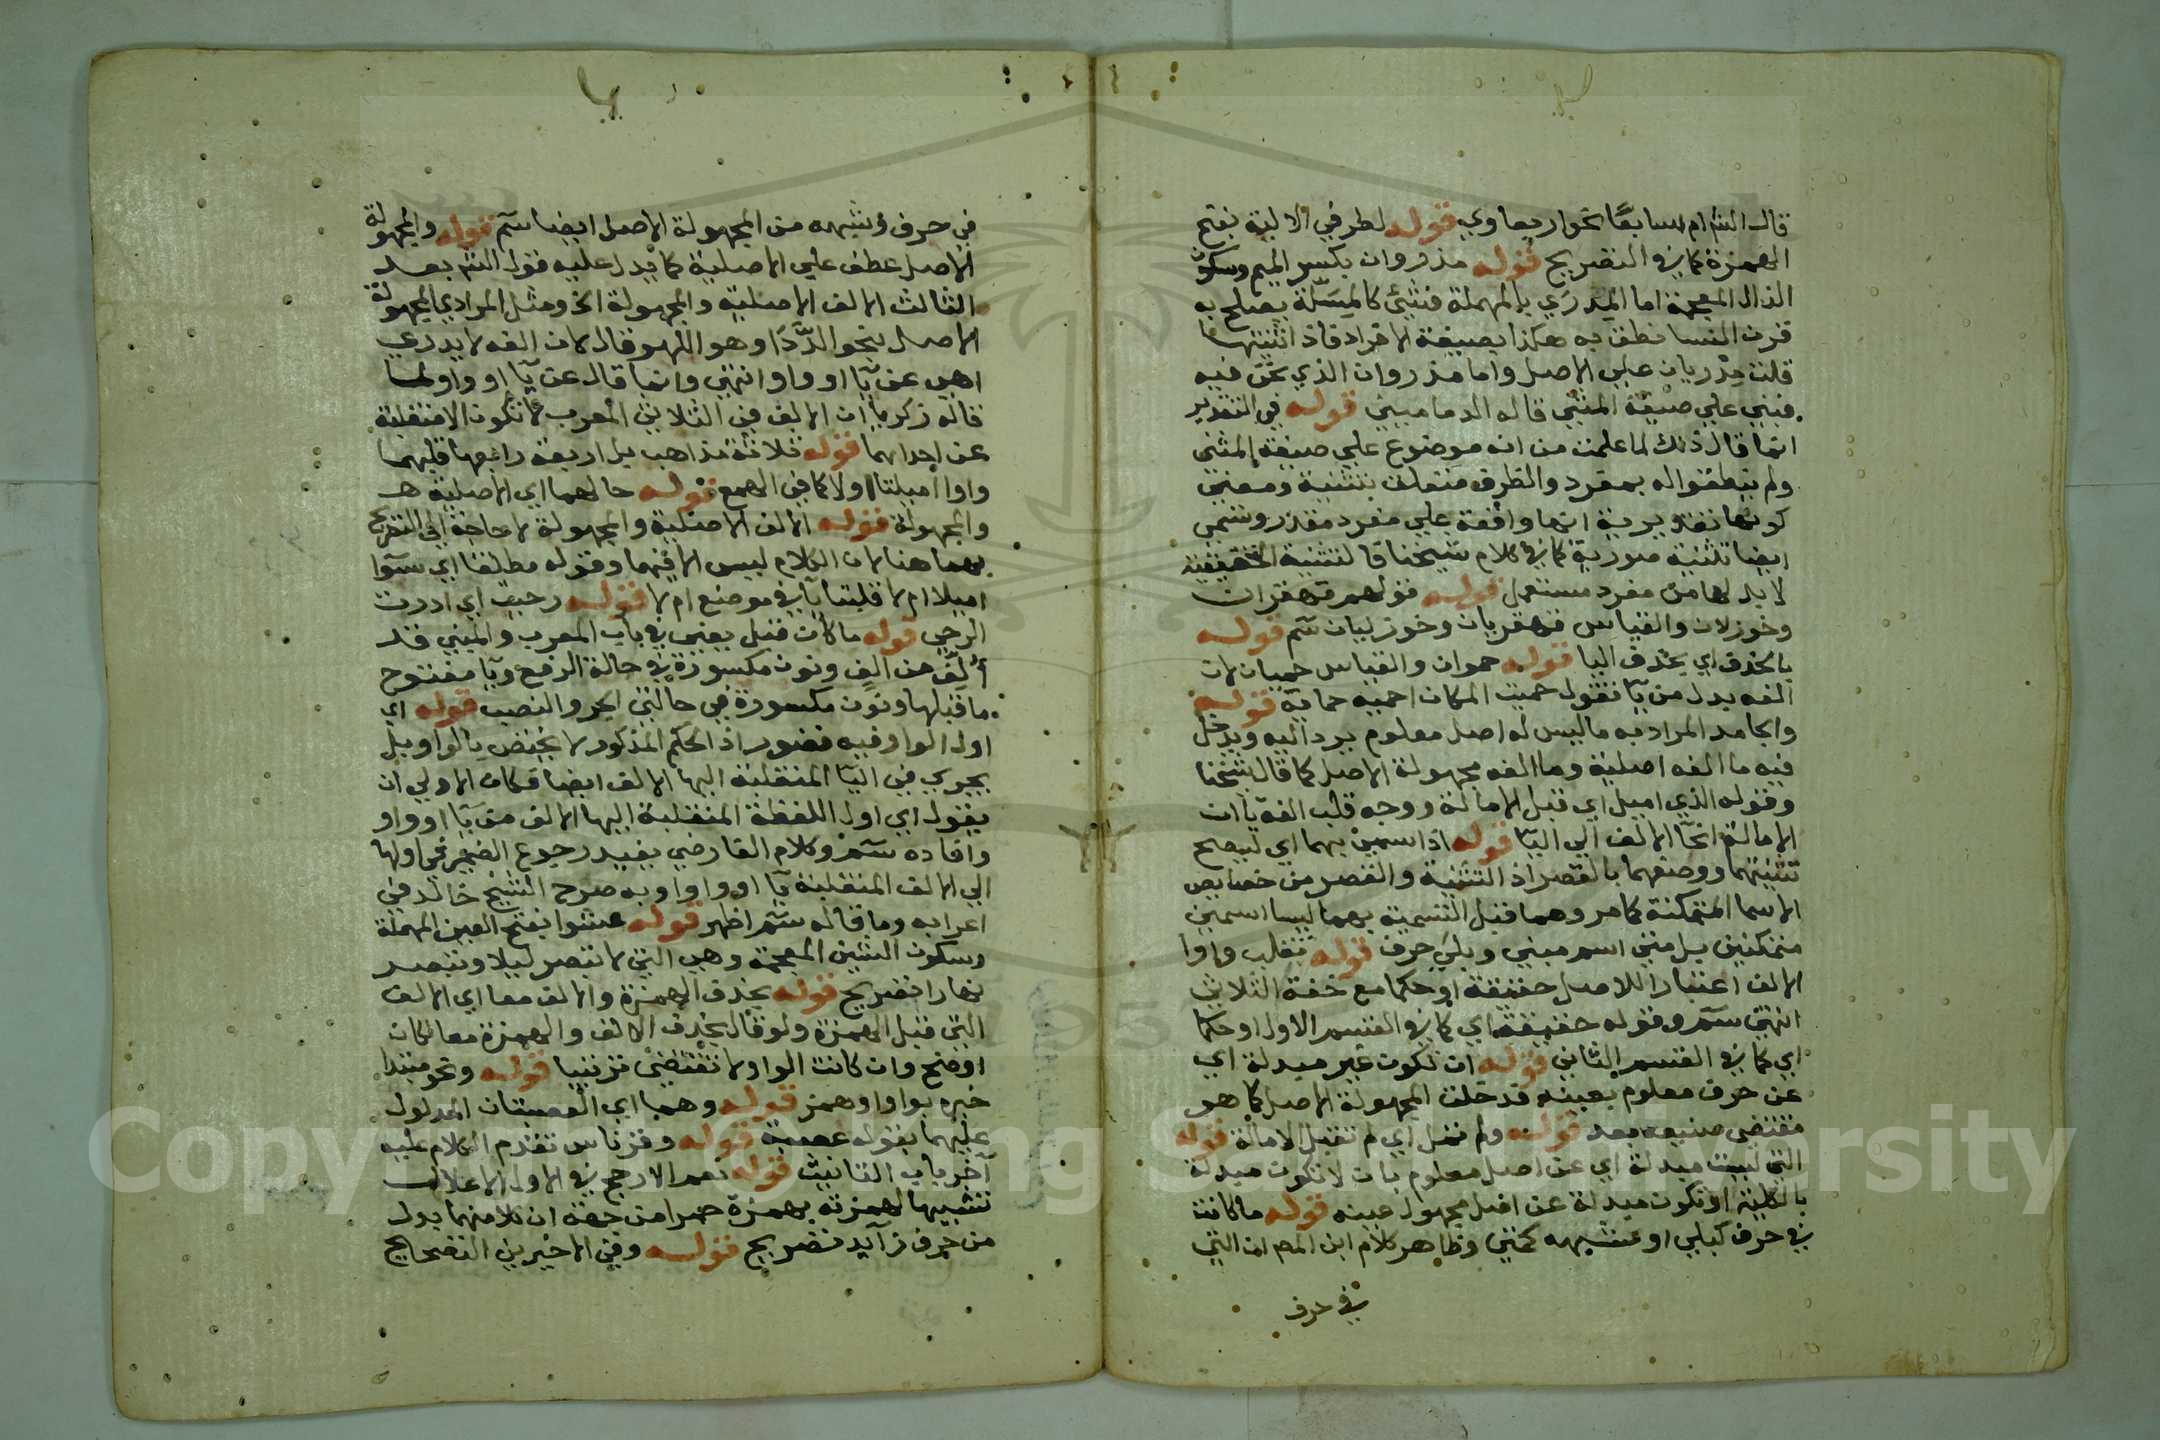 قال الشرام سابقا نحو اربعاوي قوله لطرفي الالية بفتح
الهمزة كما في التصريح قوله مذروان بكسر الميم وسكون
الذال المعجمة اما المدرَي بالمهملة فشيء كالمِسَلّة يصلح به
قرن النسا نطق به هكذا بصيغة الافراد فاذا ثنيتها
قلت مِدْريان علي الاصل واما مذروان الذي نحن فيه
فبني علي صيغة المثني قاله الدماميني قوله في التقدير
انما قال ذلك لما علمت من انه موضوع علي صيغة المثني
ولم ينطقوا له بمفرد والظرف متعلق بتثنية ومعني
كونها تقديرية انها واقعة علي مفرد مقدر وتسمي
ايضا تثنية صورية كما في كلام شيخنا فالتثنية الحقيقية
لا بد لها من مفرد مستعمل قوله قولهم قهقران
وخوزلان والقياس قهقريان وخوزليان سم قوله
بالحذف اي بحذف اليا قوله حموان والقياس حميان لان
الفه بدل من يا تقول حميت المكان احميه حماية قوله
والجامد المراد به ما ليس له اصل معلوم يرد اليه ويدخل
فيه ما الفه اصلية وما الفه مجهولة الاصل كما قال شيخنا
وقوله الذي اميل اي قبل الامالة ووجه قلب الفه يا ان
الامالة انحا الالف الي اليا قوله اذا سمين بهما اي ليصح
تثنيتهما ووصفهما بالقصر اذ التثنية والقصر من خصايص
الاسما المتمكنة كما مر وهما قبل التسمية بهما ليسا اسمين
متمكنين بل متي اسم مبني وبلي حرف قوله تقلب واوا
الالف اعتبارا للاصل حقيقة او حكما مع خفة الثلاثي
انتهي سم وقوله حقيقة اي كما في القسم الاول او حكما
اي كما في القسم الثاني قوله ان تكون غير مبدلة اي
عن حرف معلوم بعينه فدخلت المجهولة الاصل كما هو
مقتضي صنيعه بعد قوله ولم تمل اي لم تقبل الامالة قوله
التي ليست مبدلة اي عن اصل معلوم بان لا تكون مبدلة
بالكلية او تكون مبدلة عن اصل مجهول عينه قوله ما كانت
في حرف كبلي او شبهه كمتي وظاهر كلام ابن المصـ ان التي
في حرف
في حرف وشبهه من المجهولة الاصل ايضا سم قوله والمجهولة
الاصل عطف علي الاصلية كما يدل عليه قول الشـ بعد
الثالث الالف الاصلية والمجهولة الخ ومثل المرادي المجهولة
الاصل بنحو الدَّدَا وهو اللهو قال لان الفه لا يدري
اهي عن يا او واو انتهي وانما قال عن يا او واو لما
قاله زكريا ان الالف في الثلاثي المعرب لا تكون الا منقلبة
عن احداهما قوله ثلاثة مذاهب بل اربعة رابعها قلبهما
واوا اميلتا او لا كما في الهمع قوله حالهما اي الاصلية
والمجهولة قوله الالف الاصلية والمجهولة لا حاجة الي التصريح
بهما هنا لان الكلام ليس الا فيهما وقوله مطلقا اي سوآ
اميلا ام لا قلبتا يآ في موضع ام لا قوله رحيت اي ادرت
الرحي قوله ما كان قبل يعني في باب المعرب والمبني قد
أُلِف من الف ونون مكسورة في حالة الرفع ويا مفتوح
ما قبلها ونون مكسورة في حالتي الجر والنصب قوله اي
اول الواو فيه قصور اذ الحكم المذكور لا يختص بالواو بل
يجري في اليا المنقلبة اليها الالف ايضا فكان الاولي ان
يقول اي اول اللفظة المنقلبة اليها الالف من يآ او واو
وافاده سم وكلام الفارضي يفيد رجوع الضمير في اولها
الي الالف المنقلبة يآ او واوا وبه صرح الشيخ خالد في
اعرابه وما قاله سم اظهر قوله عشوا بفتح العين المهملة
وسكون الشين المعجمة وهي التي لا تبصر ليلا وتبصر
نهارا تصريح قوله بحذف الهمزة والالف معا اي الالف
التي قبل الهمزة ولو قال بحذف الالف والهمزة معا لكان
اوضح وان كانت الواو لا تقتضي ترتيبا قوله ونحو مبتدا
خبره بواو او همز قوله وهما اي العصبتان المدلول
عليهما بقوله عصبة قوله وقرناس تقدم الكلام عليه
آخر باب التانيث قوله نعم الارجح في الاول الاعلال
تشبيها لهمزته بهمزة حمرا من جهة ان كلا منهما بدل
من حرف زآيد تصريح قوله وفي الاخيرين التصحيح